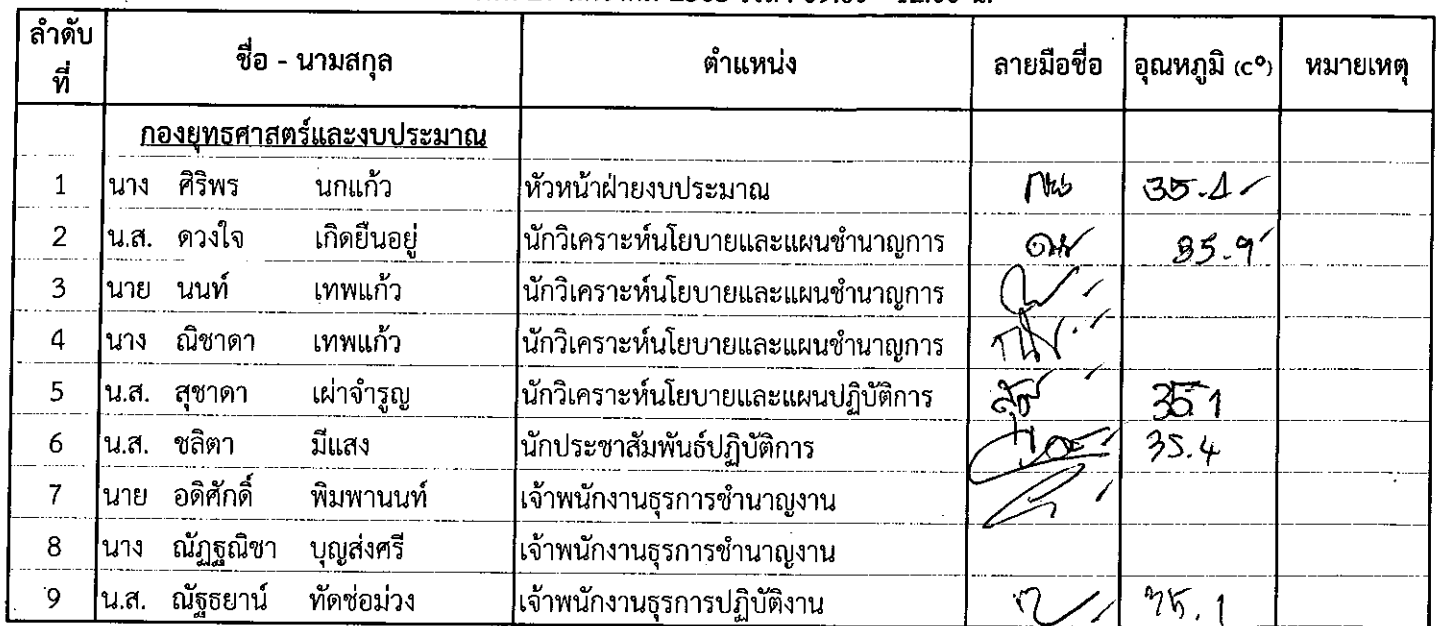 ลำดับที่ ชื่อ - นามสกุล ตำแหน่ง ลายมือชื่อ อุณหภูมิ (C°) หมายเหตุ
กองยุทธศาสตร์และงบประมาณ
1 นาง ศิริพร นกแก้ว หัวหน้าฝ่ายงบประมาณ 35.1
2 น.ส. ดวงใจ เกิดยืนอยู่ นักวิเคราะห์นโยบายและแผนชำนาญการ 35.9
3 นาย นนท์ เทพแก้ว นักวิเคราะห์นโยบายและแผนชำนาญการ
4 นาง ณิชาดา เทพแก้ว นักวิเคราะห์นโยบายและแผนชำนาญการ
5 น.ส. สุชาดา เผ่าจำรูญ นักวิเคราะห์นโยบายและแผนปฏิบัติการ 35.1
6 น.ส. ชลิตา มีแสง นักประชาสัมพันธ์ปฏิบัติการ 35.4
7 นาย อดิศักดิ์ พิมพานนท์ เจ้าพนักงานธุรการชำนาญงาน
8 นาง ณัฏฐณิชา บุญส่งศรี เจ้าพนักงานธุรการชำนาญงาน
9 น.ส. ณัฐธยาน์ ทัดช่อม่วง เจ้าพนักงานธุรการปฏิบัติงาน 35.1